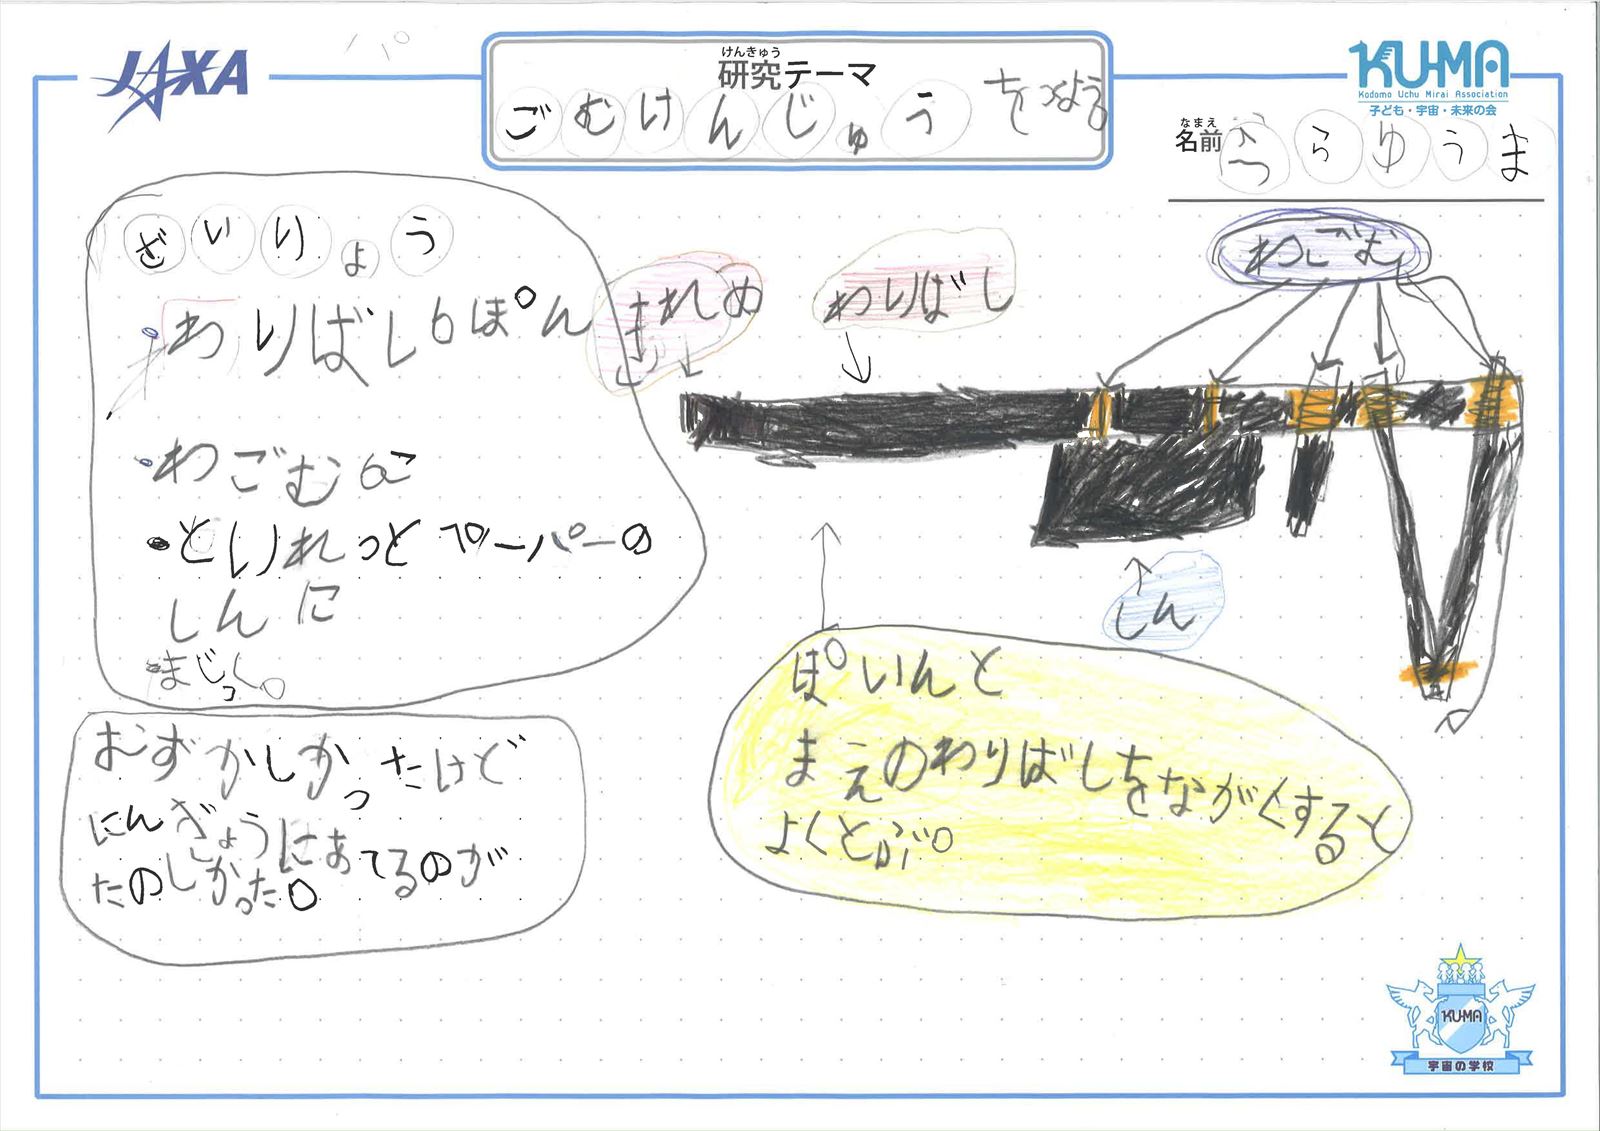 JAXA
けんきゅう
研究テーマ
ごむけんじゅう
KU-MA
Kodomo Uchu Mirai Association
子ども・宇宙・未来の会
なまえ
名前
らゆうま
ざいりょう
・わりばし6ぽん
・わごむ6こ
・といれっとペーパーの
しんに
・まじっく。
きれめ
わりばし
わごむ
しん
ぽいんと
まえのわりばしをながくすると
よくとぶ。
むずかしかったけど
にんぎょうにあてるのが
たのしかった。
KU-MA
宇宙の学校